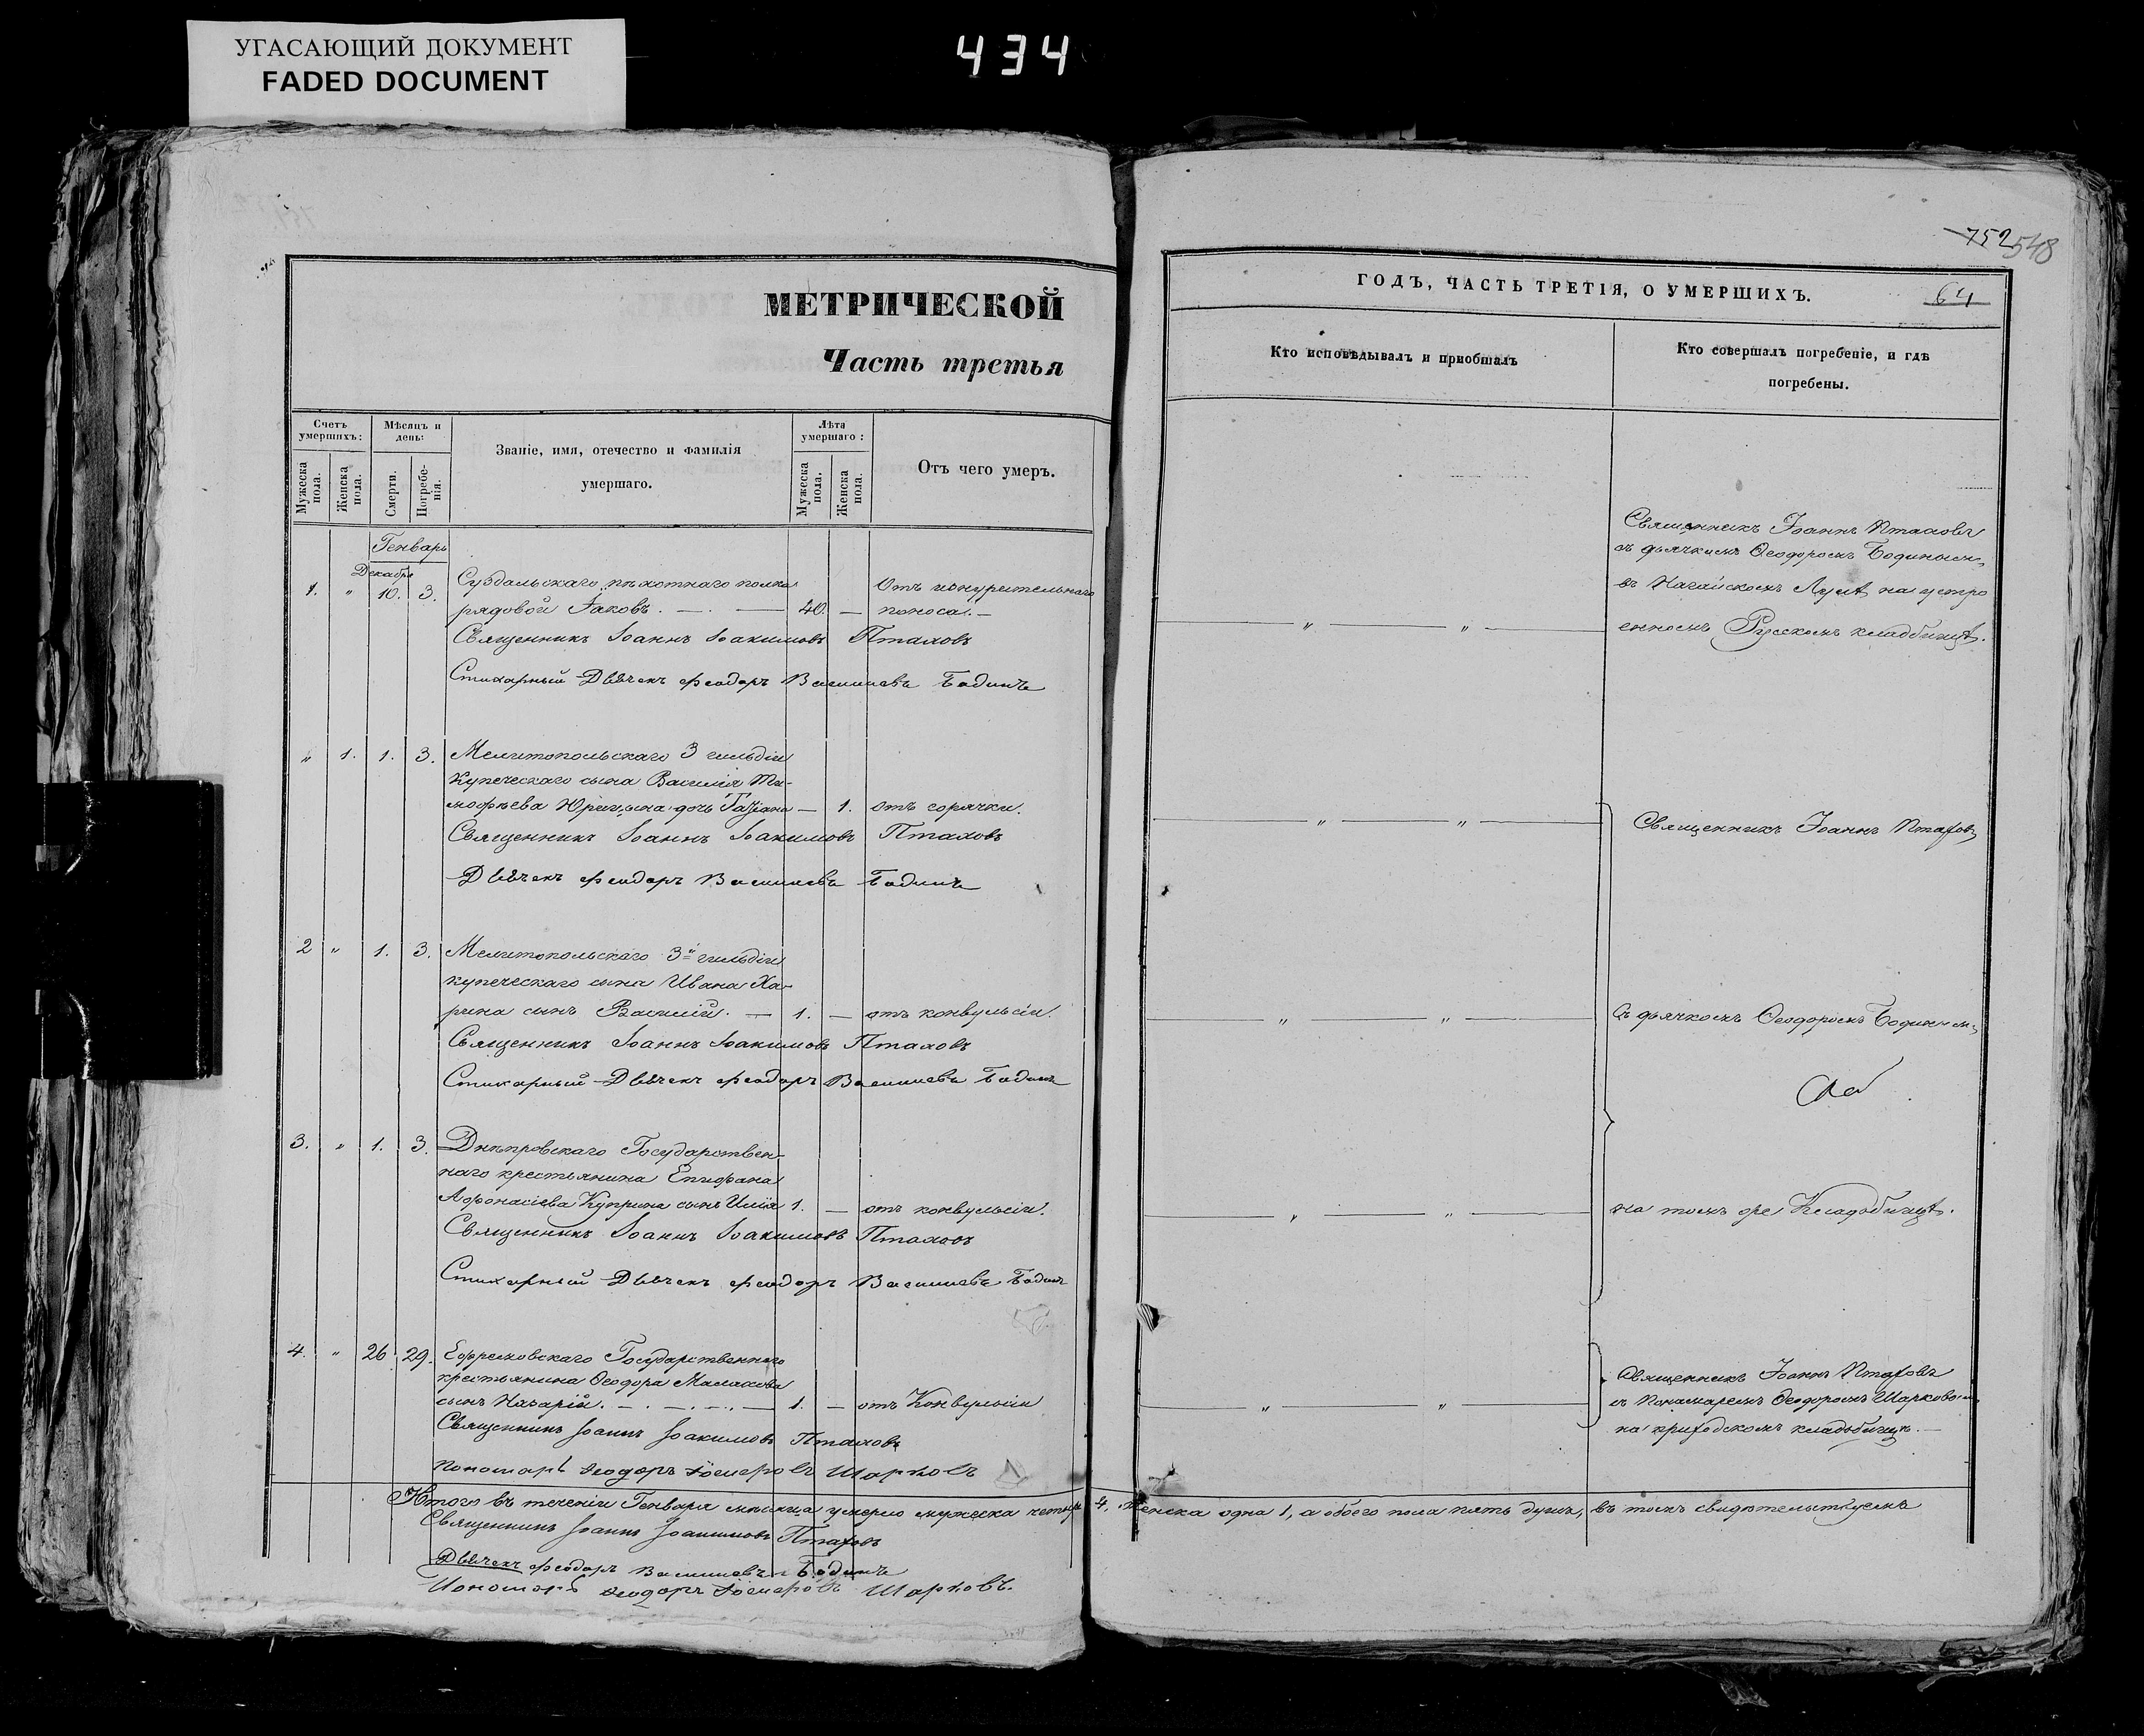 УГАСАЮЩИЙ ДОКУМЕНТ
FADED DOCUMENT
434
МЕТРИЧЕСКОЙ
Часть третья
Счетъ умершихъ:
Мужеска пола.
Женска пола.
Мѣсяцъ и день:
Смерти.
Погребе-нія.
Званіе, имя, отечество и фамилія
умершаго.
Лѣта умершаго:
Мужеска пола.
Женска пола.
Отъ чего умеръ.
Генварь
Декабря
1. " 10. 3. Суздальскаго пѣхотнаго полка Отъ изнурительнаго
рядовой Іаковъ. — 40. — поноса. —
Священникъ Іоаннъ Іоакимовъ Птаховъ
Стихарный Дьячекъ Феодоръ Васильевъ Бодинъ
" 1. 1. 3. Мелитопольскаго 3 гильдіи
купеческаго сына Василія Ти-
мофѣева дочь — 1. отъ горячки.
Священникъ Іоаннъ Іоакимовъ Птаховъ
Дьячекъ Феодоръ Васильевъ Бодинъ
2 " 1. 3. Мелитопольскаго 3й гильдіи
купеческаго сына Ивана Ха-
рина сынъ Василій. — 1. — отъ конвульсіи.
Священникъ Іоаннъ Іоакимовъ Птаховъ
Стихарный Дьячекъ Феодоръ Васильевъ Бодинъ
3. " 1. 3. Днѣпровскаго Государствен-
наго крестьянина Епифана
Афонасіева Куприна сынъ Илія 1. — отъ конвульсіи.
Священникъ Іоаннъ Іоакимовъ Птаховъ
Стихарный Дьячекъ Феодоръ Васильевъ Бодинъ
4. " 26 29. Ефремовскаго Государственнаго
крестьянина Ѳеодора Малахова
сынъ Назарій. — 1. — отъ Конвульсіи
Священникъ Іоаннъ Іоакимовъ Птаховъ
Пономарь Ѳеодоръ Шарковъ
Итого въ теченіи Генваря мѣсяца умерло мужеска четыре 4, женска одна 1, а обоего пола пять душъ, въ томъ свидѣтельствуемъ
Священникъ Іоаннъ Іоакимовъ Птаховъ
Дьячекъ Феодоръ Васильевъ Бодинъ
Пономарь Ѳеодоръ Шарковъ.
752 548
ГОДЪ, ЧАСТЬ ТРЕТІЯ, О УМЕРШИХЪ.
64
Кто исповѣдывалъ и приобщалъ
Кто совершалъ погребеніе, и гдѣ
погребены.
Священникъ Іоаннъ Птаховъ
съ дьячкомъ Ѳеодоромъ Бодинымъ
въ Нагайскомъ Аулѣ на устро
енномъ Русскомъ кладбищѣ.
Священникъ Іоаннъ Птаховъ
съ дьячкомъ Ѳеодоромъ Бодинымъ
на томъ же Кладбищѣ.
Священникъ Іоаннъ Птаховъ
съ Пономаремъ Ѳеодоромъ Шарковымъ
на приходскомъ кладбищѣ. —